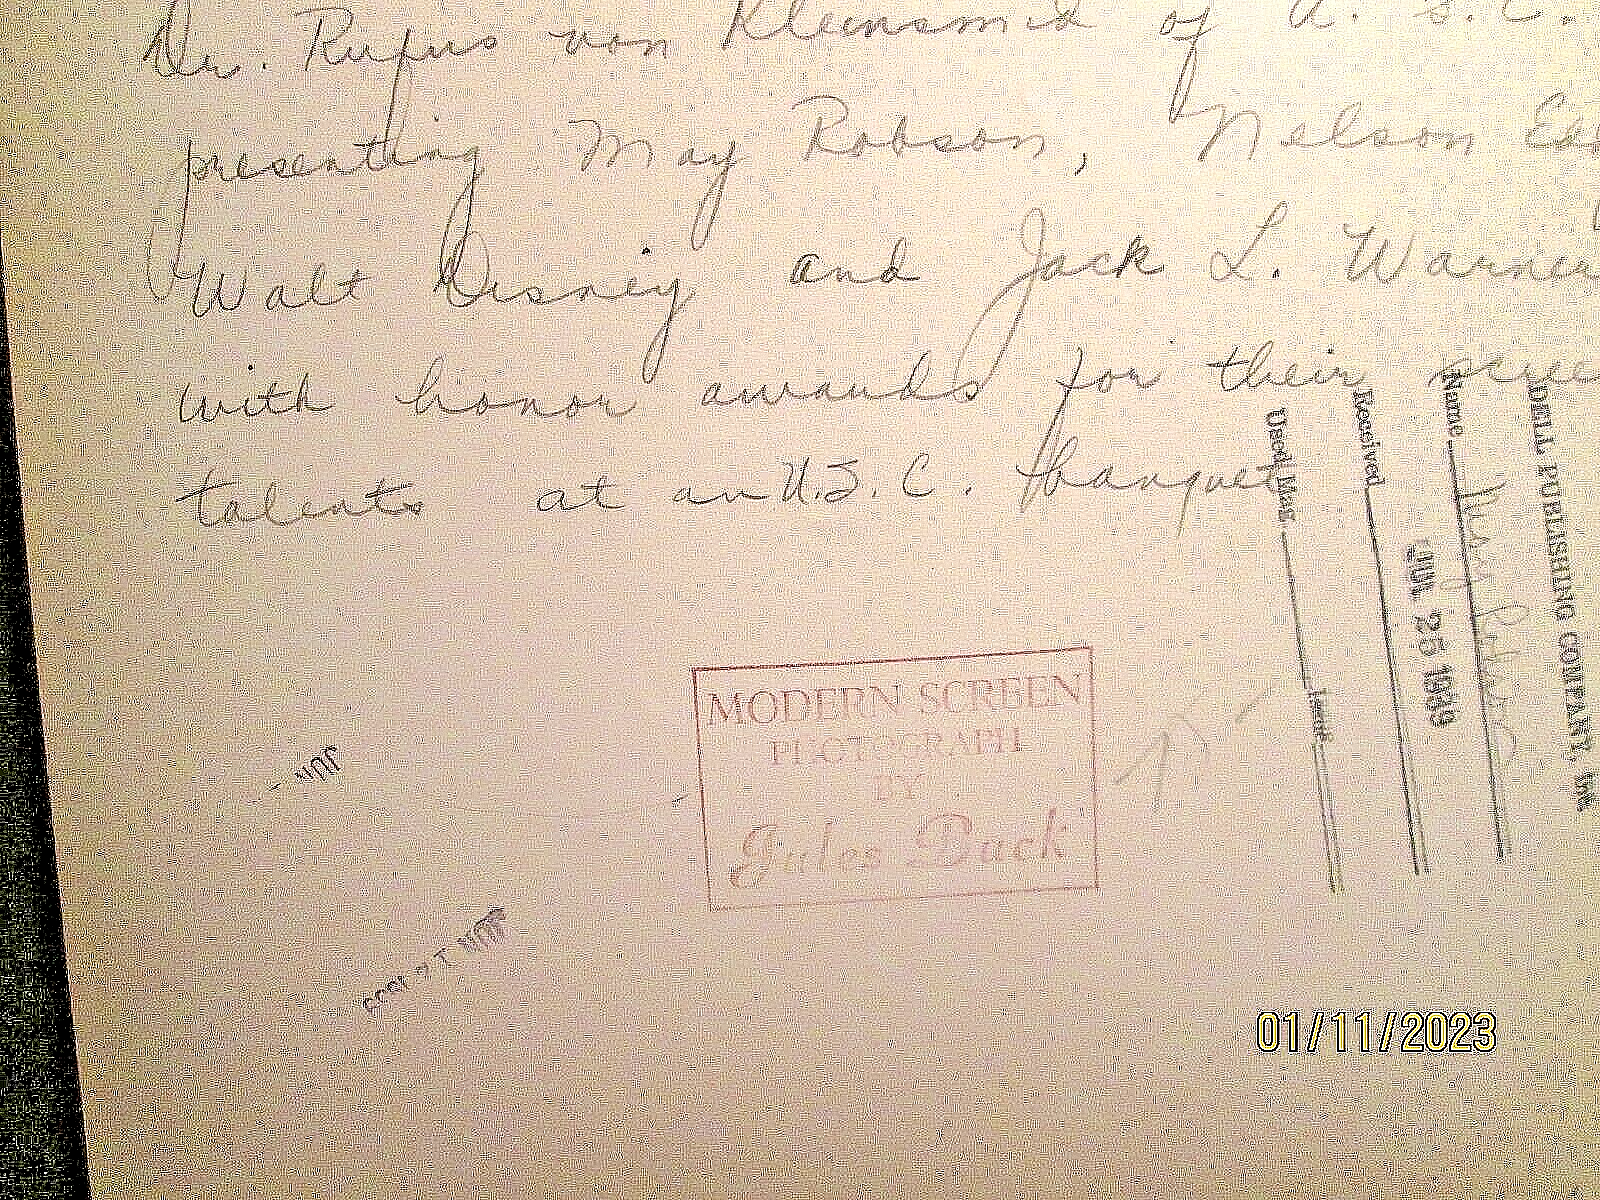 Dr. Rufus von Kleinsmid of U. S. C.
presenting May Robson, Nelson
Walt Disney and Jack L. Warner
with honor awards for their
talents at an U.S.C. banquet
DELL PUBLISHING COMPANY, Inc
Name May Robson
Received JUL 25 1939
Used Mag. Issue
MODERN SCREEN
PHOTOGRAPH
BY
Jules Buck
JUN
JUN
01/11/2023